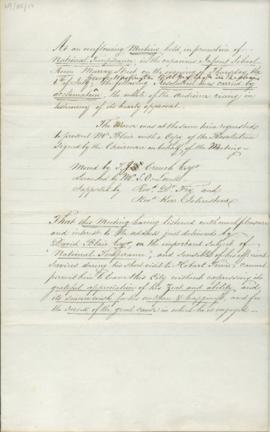 At an overflowing Meeting held in promotion of
National Temperance, in the capacious Infant School
Room Murray Street on the
the following Resolution was carried by
acclamation, the whole of the audience rising in
testimony of its hearty approval.
The Mover was at the same time requested
to present Mr Blair with a Copy of the Resolution
Signed by the Chairman on behalf of the Meeting
Moved by Crouch Esqr
Seconded by Mr
Supported by Revd Dr Fry and
Revd Knox Johnstone
That this Meeting having listened with much pleasure
and interest to the address just delivered by
David Blair Esqr, on the important Subject of
National Temperance, and sensible of his efficient
Services during his short visit to Hobart Town, cannot
permit him to leave this City without expressing its
grateful appreciation of his zeal and ability, and
its for his welfare & happiness, and for
the success of the great cause in which he is engaged